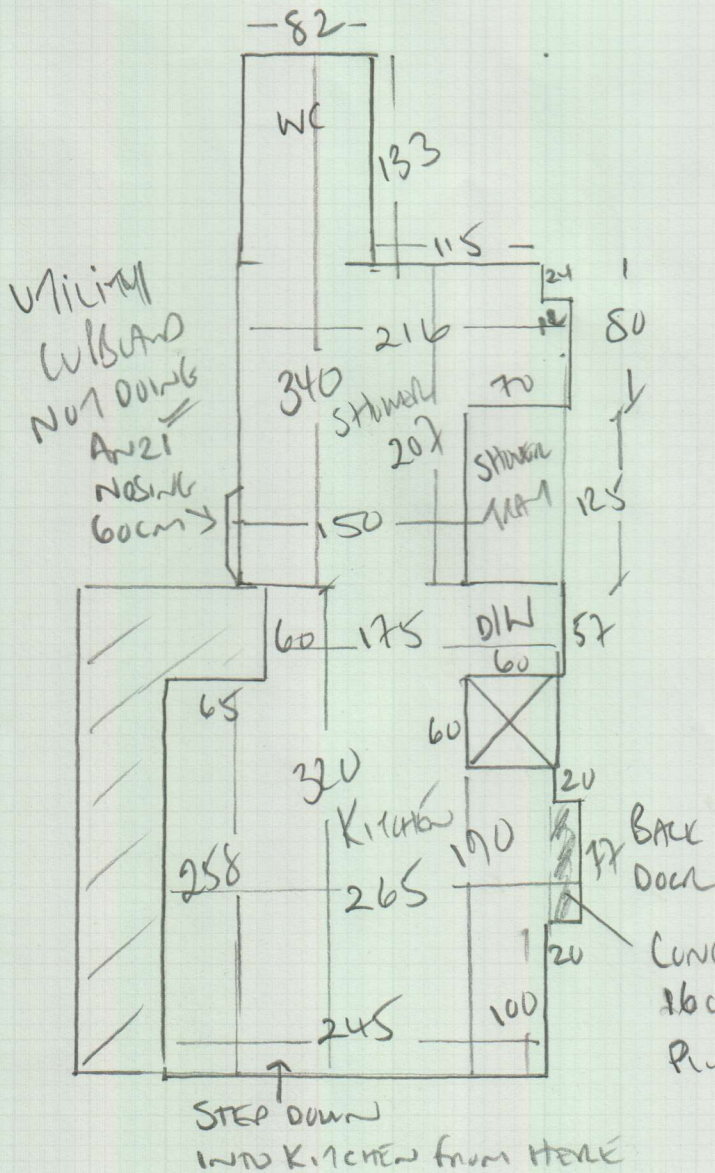 82
WC
133
115
24
12
216
80
UTILITY
CUPBOARD
NOT DOING
340
SHOWER
70
207
SHOWER
TRAY
125
NOSING
60CM
150
60
175
D/W
57
60
65
60
320
20
KITCHEN
190
77
BACK
DOOR
258
265
20
100
245
STEP DOWN
INTO KITCHEN FROM HERE